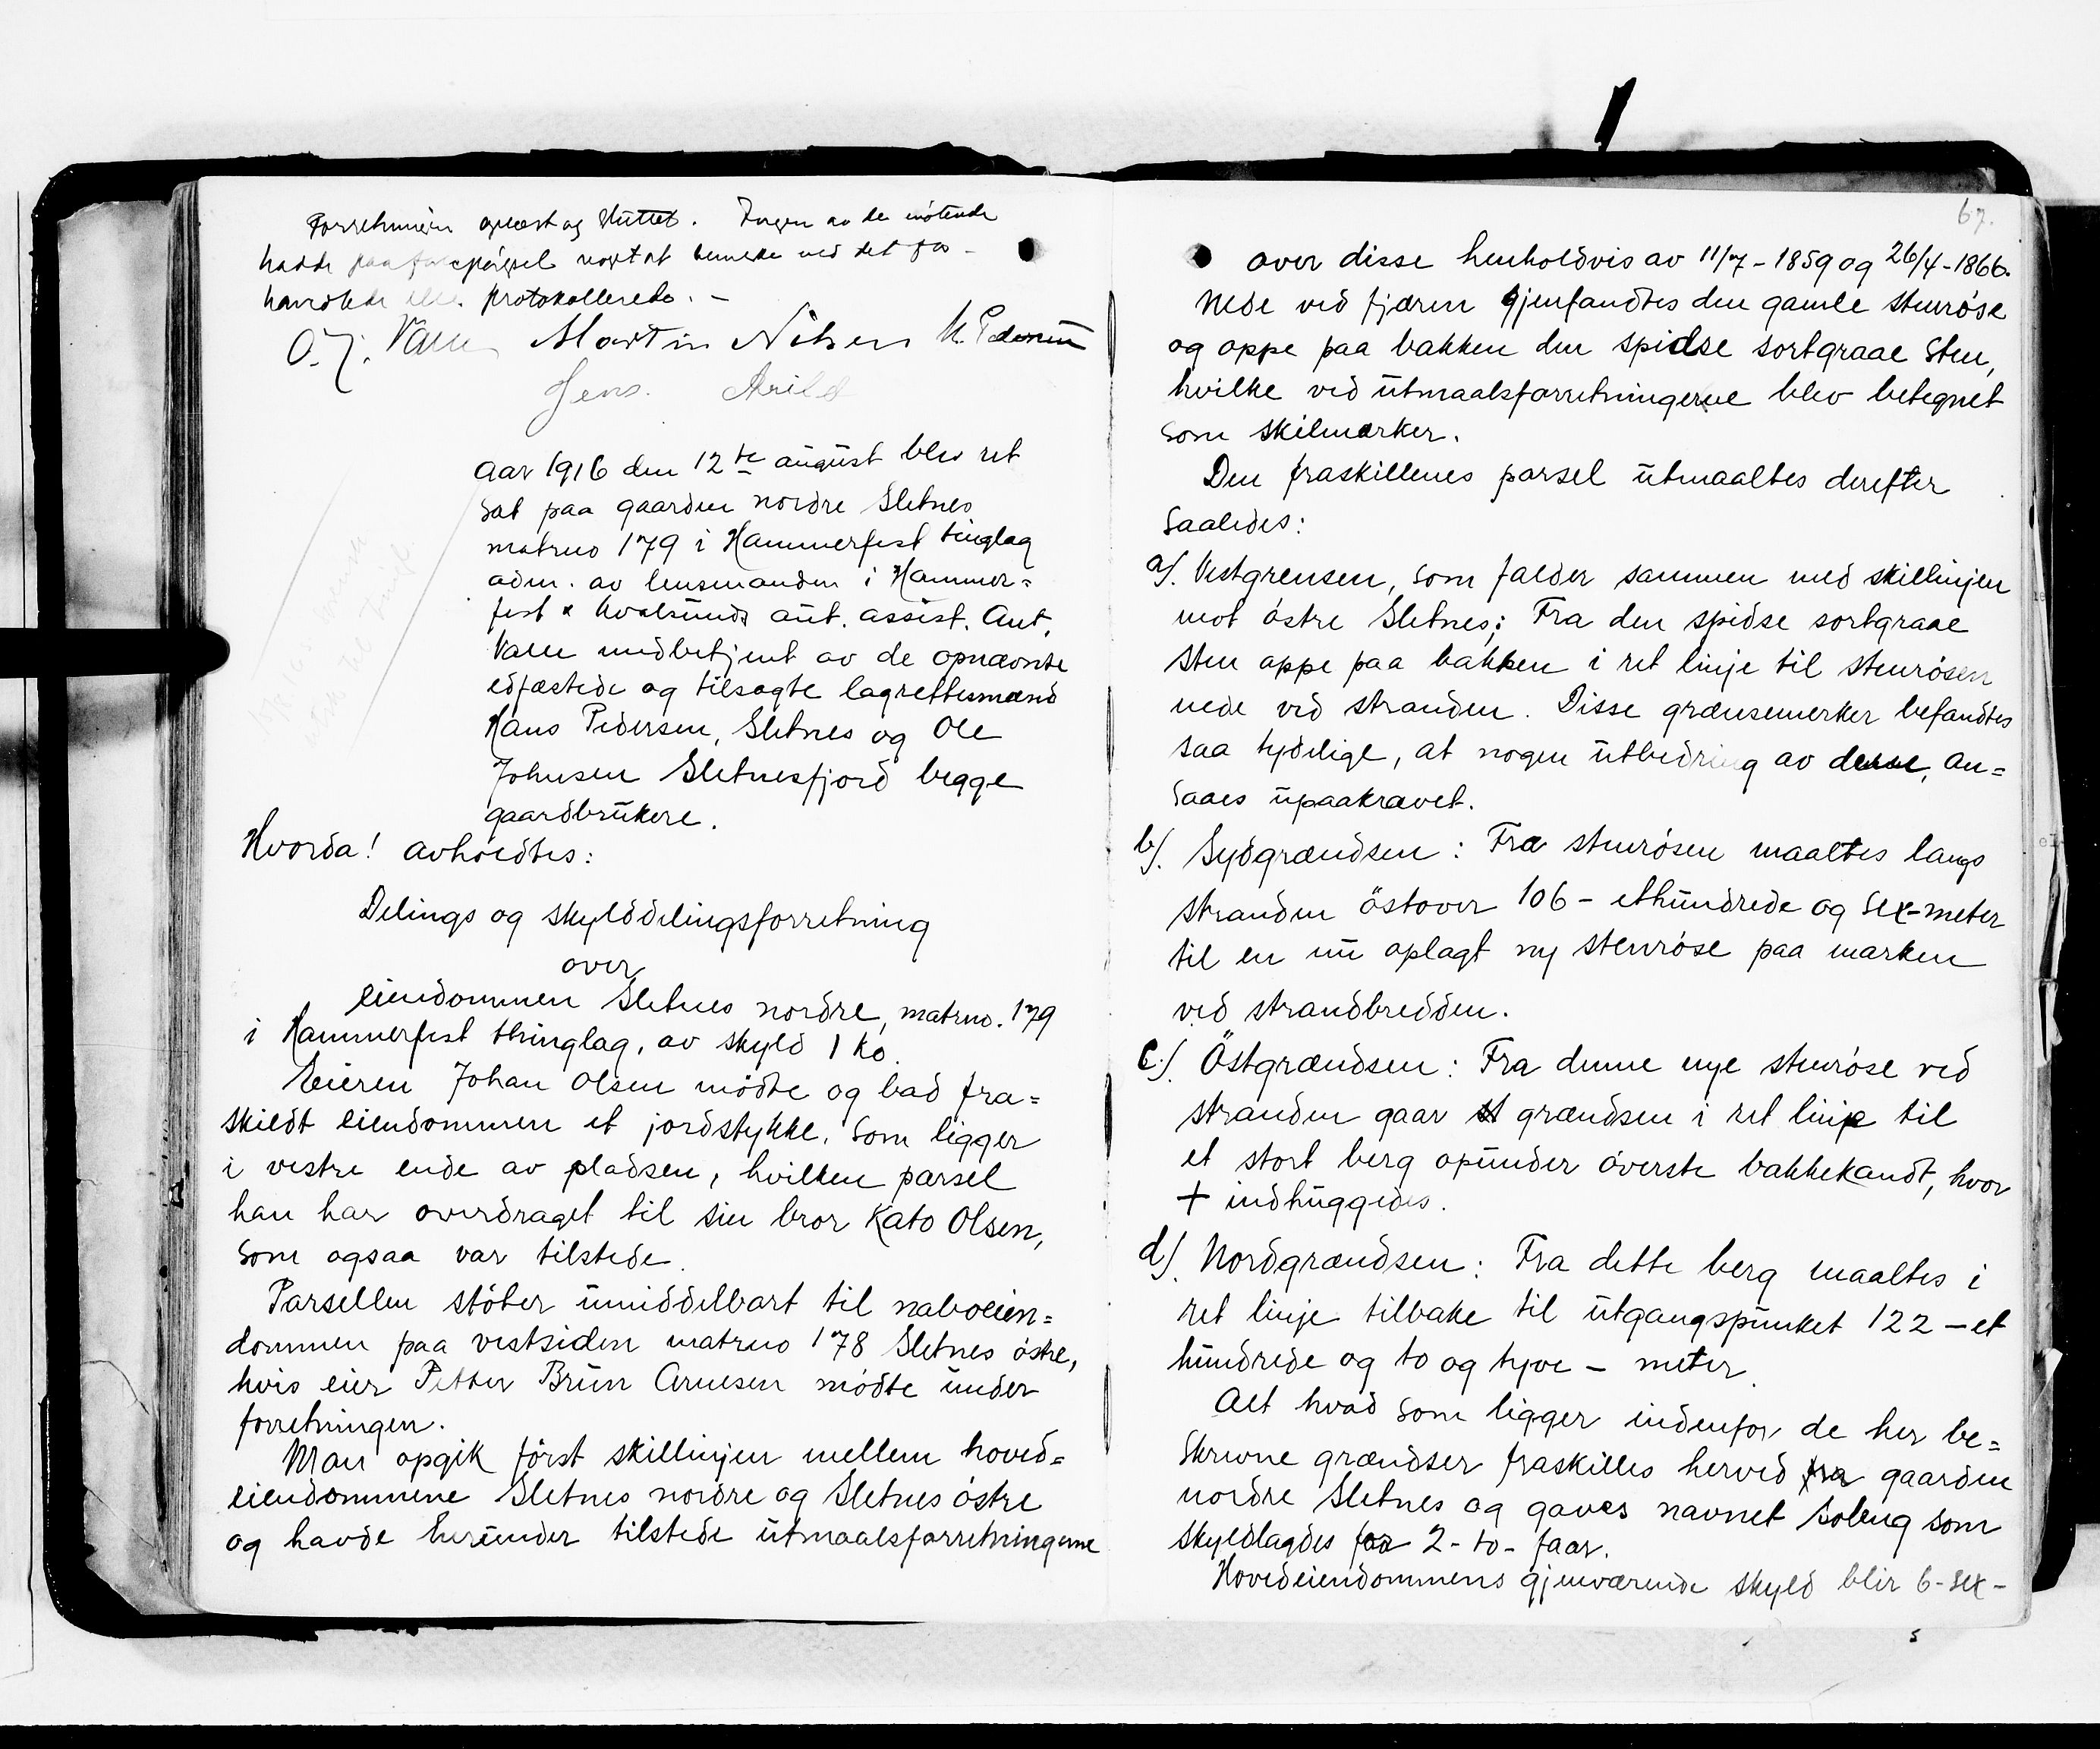 Forretningen oplæst og sluttet. Ingen av de møtende
hadde paa forespörgsel noget at bemerke ved det for-
handlede eller protokollerede. -
O. J. Valle Martin Nilsen
Jens. Arild
Aar 1916 den 12te august blev ret
sat paa gaarden nordre Sletnes
matrno 179 i Hammerfest tinglag
adm. av lensmanden i Hammer=
fest & Kvalsunds aut. assist. Ant.
Valle medbetjent av de opnævnte
edfæstede og tilsagte lagrettesmænd
Hans Pedersen, Sletnes og Ole
Johnsen Sletnesfjord begge
gaardbrukere.
Hvorda! avholdtes:
Delings og skylddelingsforretning
over
eiendommen Sletnes nordre, matrno. 179
i Hammerfest thinglag, av skyld 1 ko.
Eieren Johan Olsen mødte og bad fra=
skildt eiendommen et jordstykke, som ligger
i vestre ende av pladsen, hvilken parsel
han har overdraget til sin bror Kato Olsen,
som ogsaa var tilstede.
Parsellen stöter umiddelbart til naboeien=
dommen paa vestsiden matrno 178 Sletnes östre,
hvis eier Petter Brun Arnesen mödte under
forretningen.
Man opgik först skillinjen mellem hoved=
eiendommene Sletnes nordre og Sletnes östre
og havde herunder tilstede utmaalsforretningerne
67.
over disse henholdvis av 11/7-1859 og 26/4-1866.
Nede ved fjæren gjenfandtes den gamle stenröse
og oppe paa bakken den spidse sortgraae Sten,
hvilke ved utmaalsforretningerne blev betegnet
som skilmærker.
Den fraskillenes parsel utmaaltes derefter
saaledes:
a). Vestgrensen, som falder sammen med skillinjen
mot östre Sletnes: Fra den spidse sortgraae
sten oppe paa bakken i ret linje til stenrösen
nede ved stranden. Disse grænsemerker befandtes
saa tydelige, at nogen utbedring av denne, an=
saaes upaakrævet.
b). Sydgrændsen: Fra stenrösen maaltes langs
stranden östover 106 - ethundrede og sex-meter
til en nu oplagt ny stenröse paa marken
ved strandbredden.
c). Östgrændsen: Fra denne nye stenröse ved
stranden gaar grændsen i ret linje til
et stort berg opunder överste bakkekandt, hvor
+ indhuggedes.
d). Nordgrændsen: Fra dette berg maaltes i
ret linje tilbake til utgangspunket 122 - et
hundrede og to og tyve - meter.
Alt hvad som ligger indenfor de her be=
skrevne grændser fraskilles herved fra gaarden
nordre Sletnes og gaves navnet Soleng som
skyldlagdes for 2 - to - faar.
Hovedeiendommens gjenværende skyld blir 6-sex-